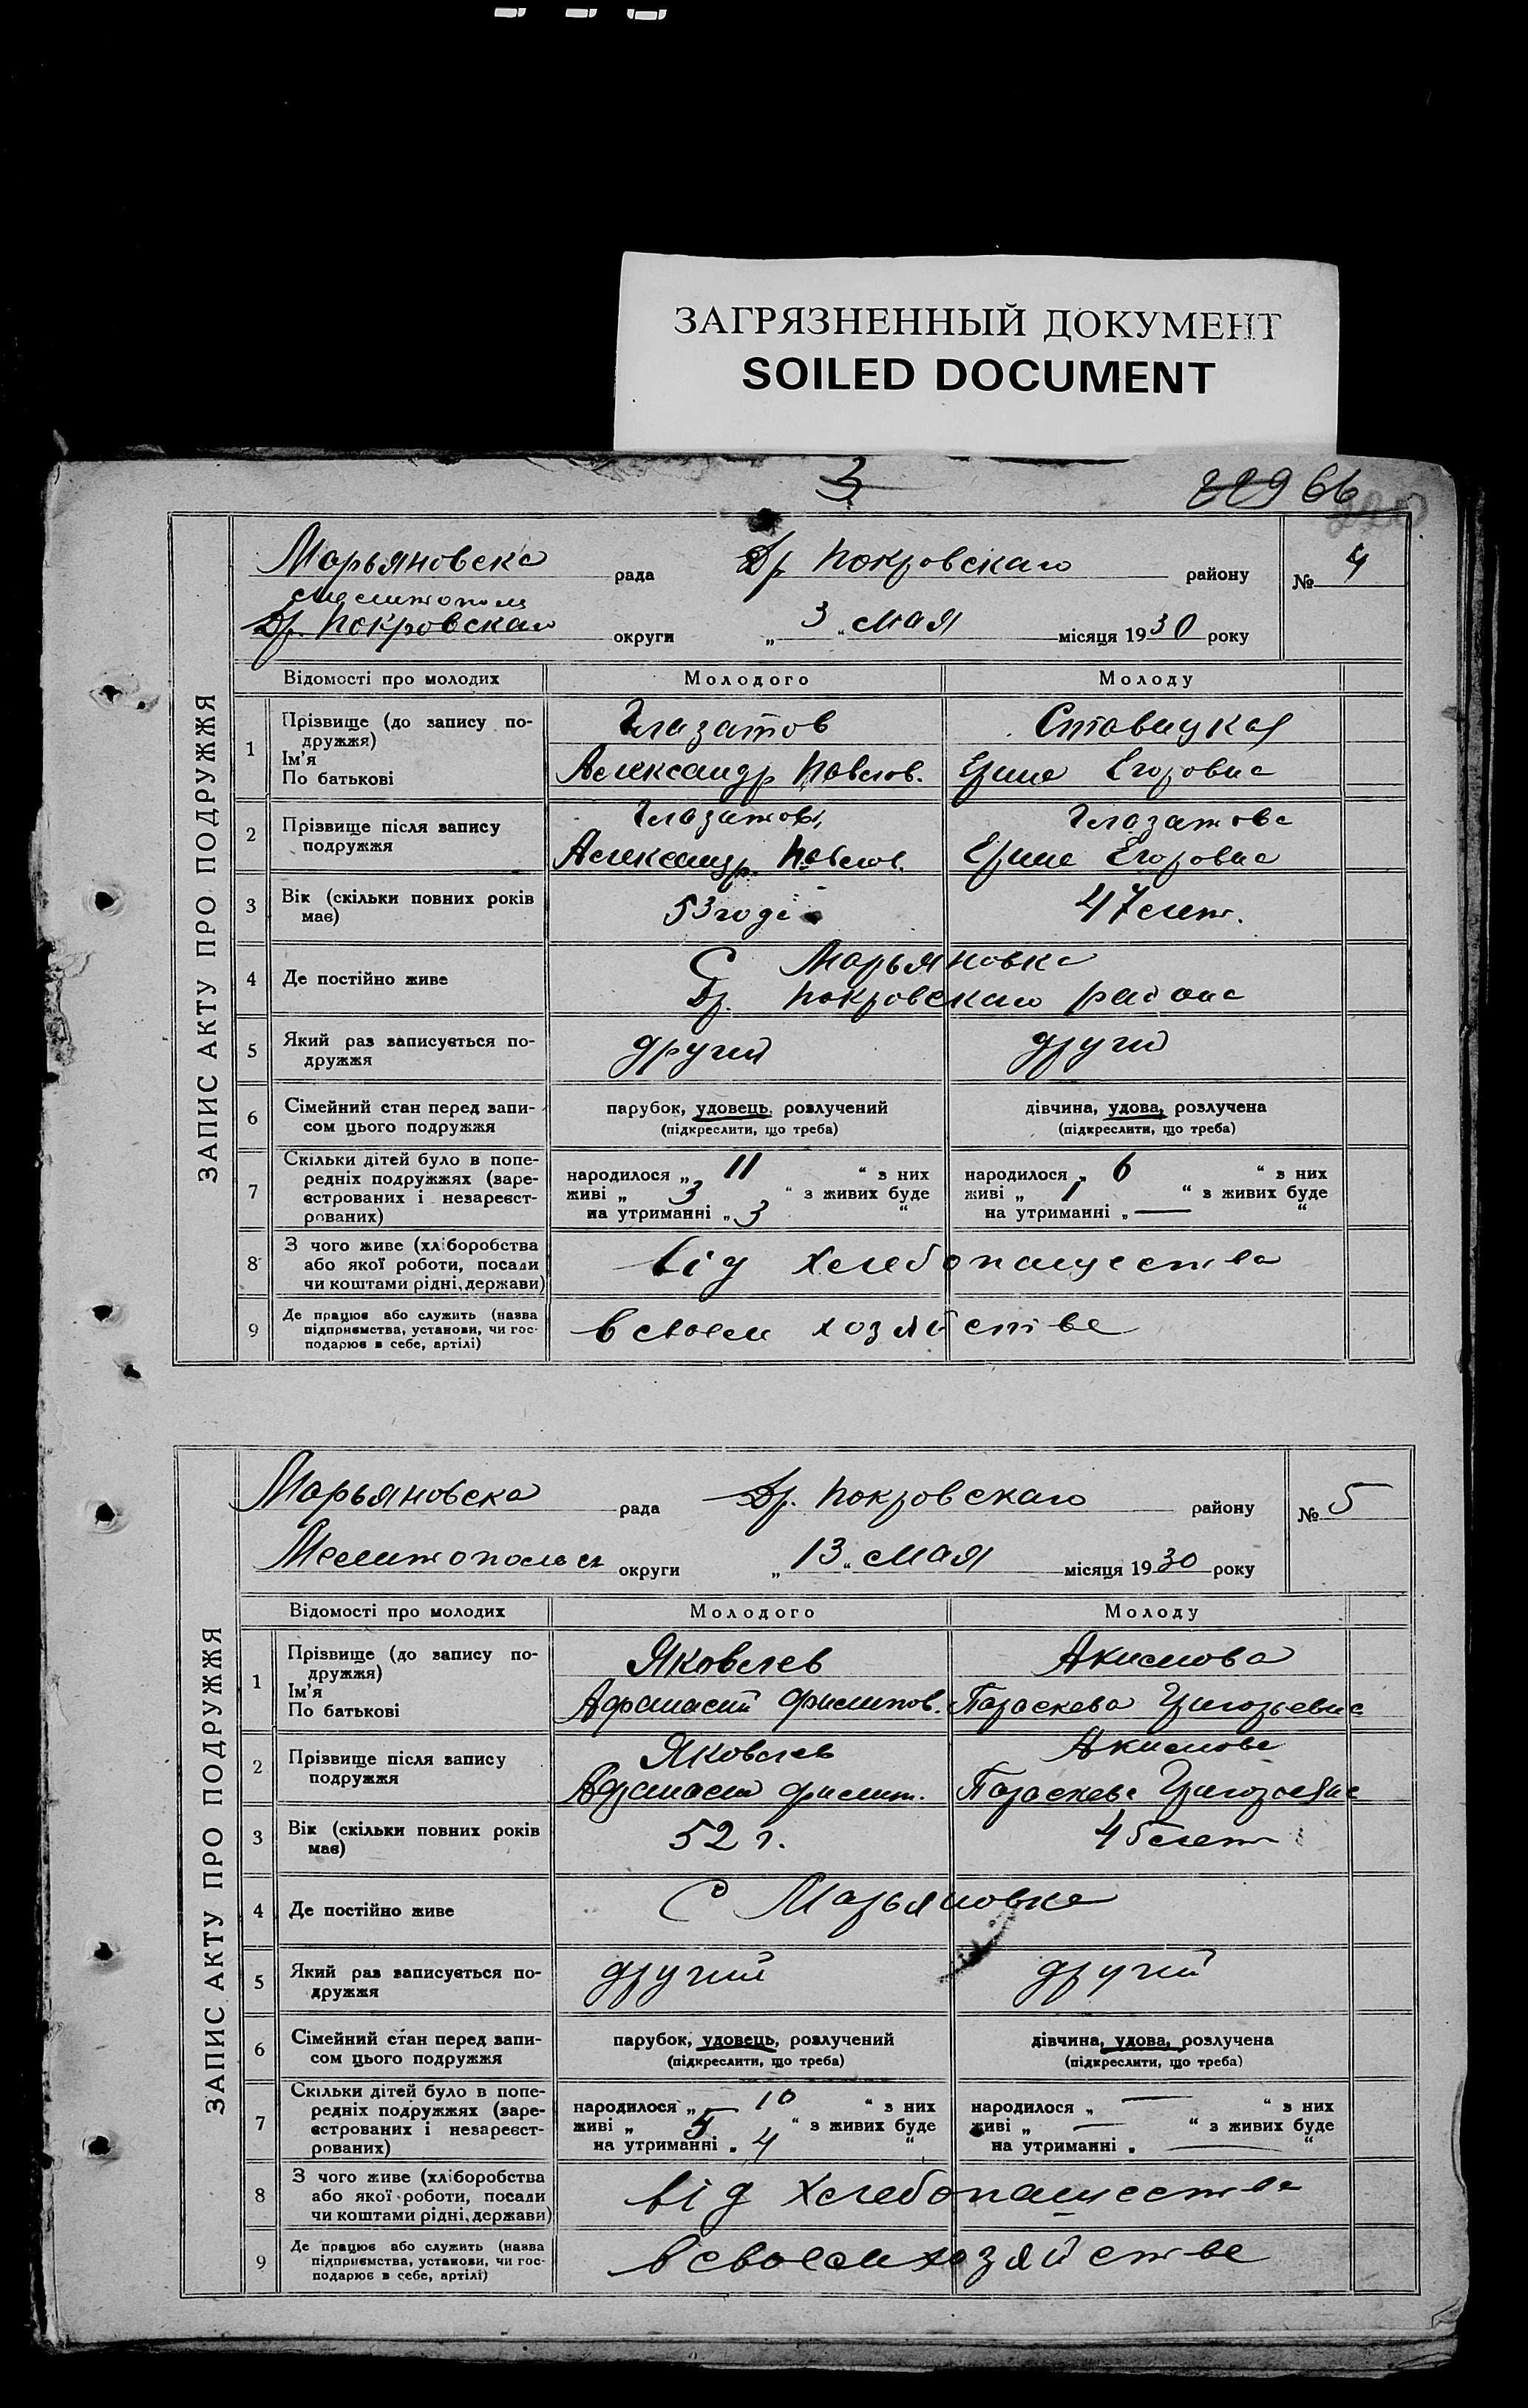 ЗАГРЯЗНЕННЫЙ ДОКУМЕНТ
SOILED DOCUMENT
3
229 66
ЗАПИС АКТУ ПРО ПОДРУЖЖЯ
Марьяновска рада Др Покровского району № 4
Мелитополь
Др. Покровская округи „ 3 “ мая місяця 1930 року
Відомості про молодих Молодого Молоду
1 Прізвище (до запису по-
дружжя) Глазатов Ставицкая
Ім'я
По батькові Александр Павлов. Ерина Егоровна
2 Прізвище після запису Глазатов Глазатова
подружжя Александр. Павлов. Ерина Егоровна
3 Вік (скільки повних років
має) 53 года 47 лет.
4 Де постійно живе С Марьяновка
Др. Покровского района
5 Який раз записується по-
дружжя другий другий
6 Сімейний стан перед запи-
сом цього подружжя парубок, удовець, розлучений дівчина, удова, розлучена
(підкреслити, що треба) (підкреслити, що треба)
7 Скільки дітей було в попе-
редніх подружжях (заре- народилося „ 11 “ з них народилося „ 6 “ з них
єстрованих і незареєст- живі „ 3 “ з живих буде живі „ 1 “ з живих буде
рованих) на утриманні „ 3 “ на утриманні „ — “
8 З чого живе (хліборобства
або якої роботи, посади від хлебопашества
чи коштами рідні, держави)
9 Де працює або служить (назва
підприємства, установи, чи гос- в своем хозяйстве
подарює в себе, артілі)
ЗАПИС АКТУ ПРО ПОДРУЖЖЯ
Марьяновска рада Др. Покровского району № 5
Мелитопольск округи „ 13 “ мая місяця 1930 року
Відомості про молодих Молодого Молоду
1 Прізвище (до запису по-
дружжя) Яковлев Акимова
Ім'я
По батькові Афанасий Филипов. Параскева Григорьевна
2 Прізвище після запису Яковлев Акимова
подружжя Афанасий Филип. Параскева Григорьевна
3 Вік (скільки повних років
має) 52 г. 45 лет
4 Де постійно живе С Марьяновка
5 Який раз записується по-
дружжя другий другий
6 Сімейний стан перед запи-
сом цього подружжя парубок, удовець, розлучений дівчина, удова, розлучена
(підкреслити, що треба) (підкреслити, що треба)
7 Скільки дітей було в попе-
редніх подружжях (заре- народилося „ 10 “ з них народилося „ — “ з них
єстрованих і незареєст- живі „ 5 “ з живих буде живі „ — “ з живих буде
рованих) на утриманні „ 4 “ на утриманні „ — “
8 З чого живе (хліборобства
або якої роботи, посади від хлебопашества
чи коштами рідні, держави)
9 Де працює або служить (назва
підприємства, установи, чи гос- в своем хозяйстве
подарює в себе, артілі)